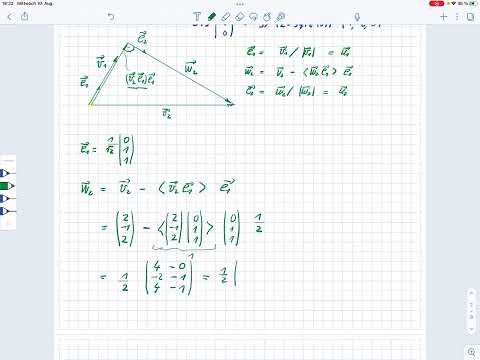 18:22 Mittwoch 10. Aug.
86 %
0
e₂
v₁
w₂
e₁
(v₂e₁)e₁
v₂
e₁ = v₁/|v₁| =
w₂ = v₂ - <v₂e₁> e₁
e₂ = w₂/|w₂| =
e₁ = 1/√2 (0 1 1)
w₂ = v₂ - <v₂ e₁> e₁
= (2 -1 2) - <(2 -1 2) (0 1 1)> (0 1 1) 1/2
1
= 1/2 (4 - 0 -2 - 1 4 - 1) = 1/2 (